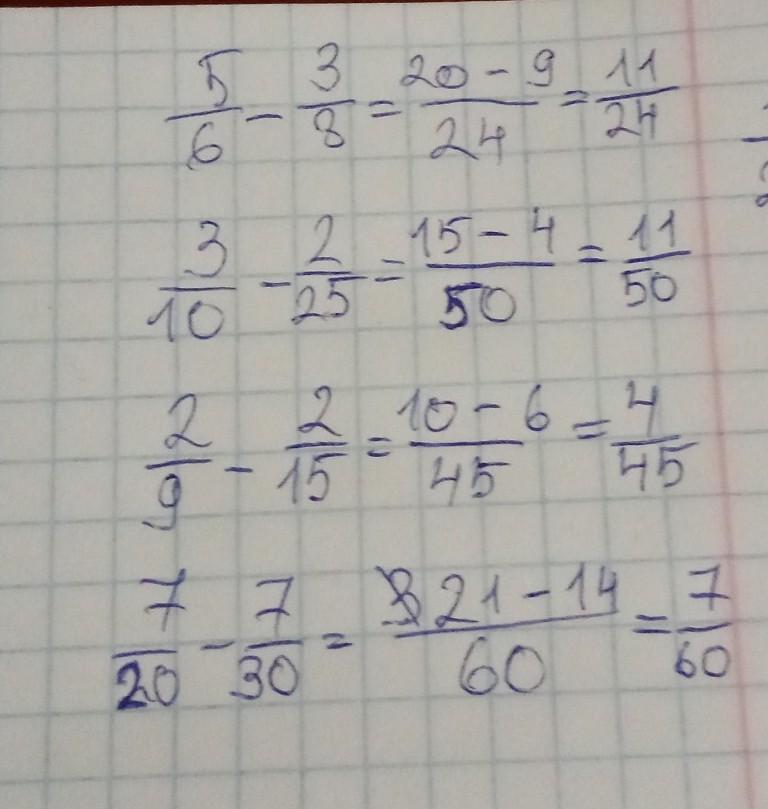 5/6 - 3/8 = 20 - 9/24 = 11/24
3/10 - 2/25 = 15 - 4/50 = 11/50
2/9 - 2/15 = 10 - 6/45 = 4/45
7/20 - 7/30 = 21 - 14/60 = 7/60